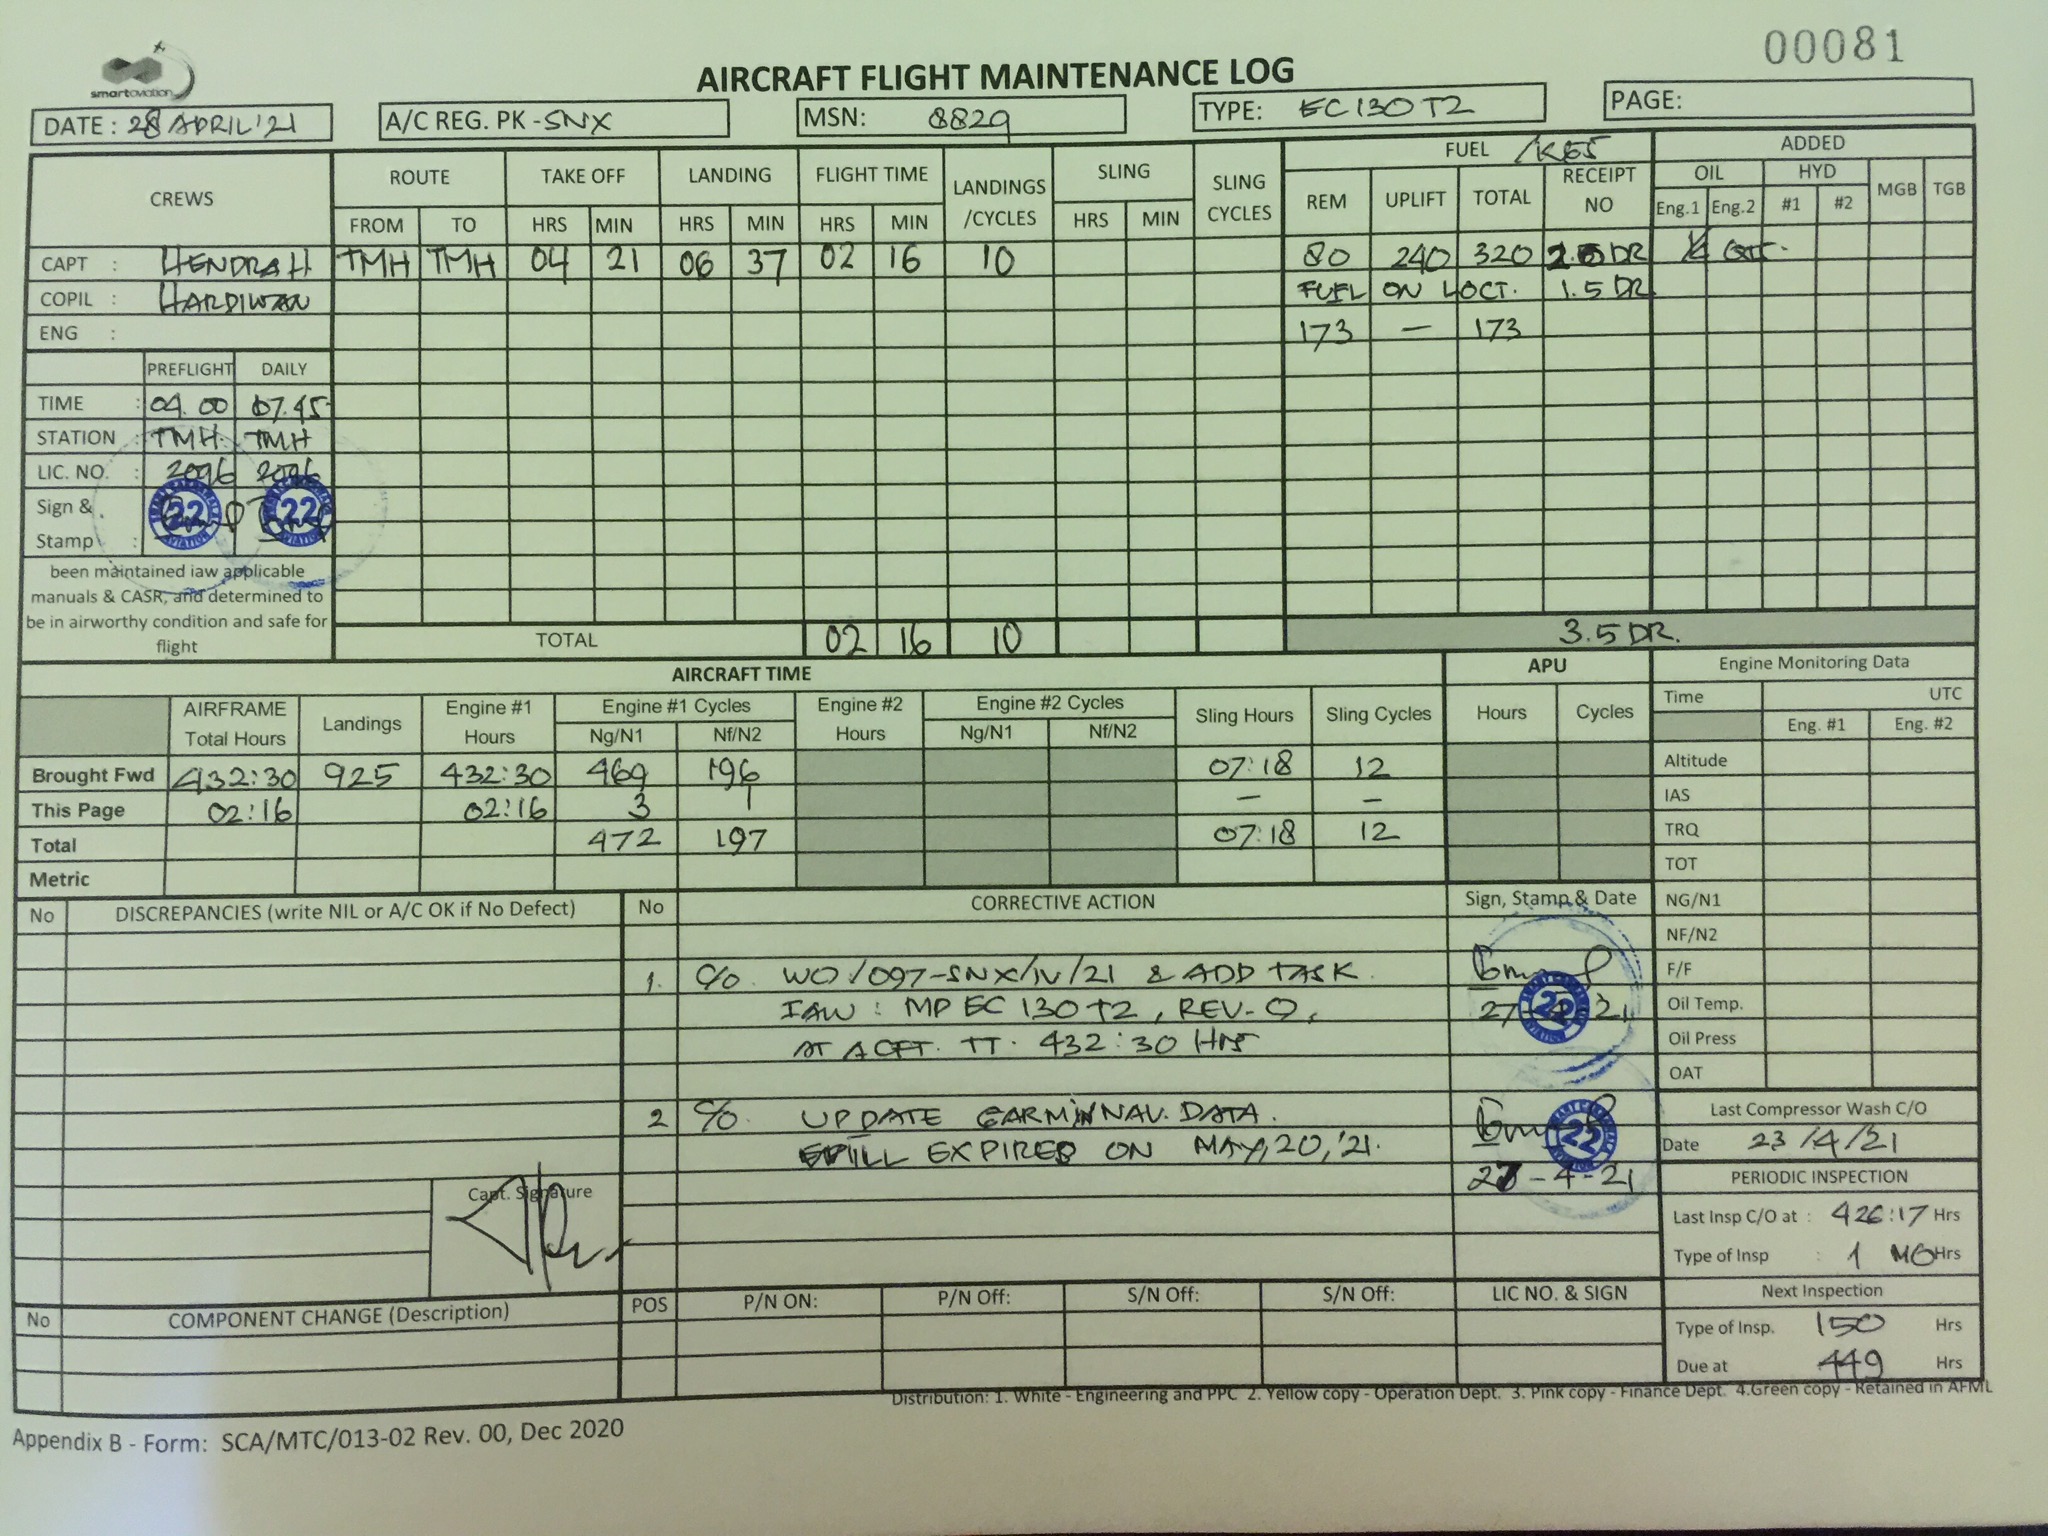 00081
smartaviation
AIRCRAFT FLIGHT MAINTENANCE LOG
DATE : 28 APRIL '21
A/C REG. PK -SNX
MSN: 8829
TYPE: EC 130 T2
PAGE:
CREWS
ROUTE TAKE OFF LANDING FLIGHT TIME LANDINGS /CYCLES SLING SLING CYCLES
FROM TO HRS MIN HRS MIN HRS MIN HRS MIN
FUEL ADDED
REM UPLIFT TOTAL RECEIPT NO OIL HYD MGB TGB
Eng.1 Eng.2 #1 #2
CAPT : HENDRA H TMH TMH 04 21 06 37 02 16 10 80 240 320 DR
COPIL : HARDIWAN FUEL ON LOCT. 1.5 DR
ENG : 173 — 173
PREFLIGHT DAILY
TIME : 04.00 07.45
STATION : TMH TMH
LIC. NO. : 2096 2096
Sign & Stamp :
22 22
been maintained iaw applicable
manuals & CASR, and determined to
be in airworthy condition and safe for
flight
TOTAL 02 16 10 3.5 DR.
AIRCRAFT TIME
AIRFRAME Total Hours Landings Engine #1 Hours Engine #1 Cycles Engine #2 Hours Engine #2 Cycles Sling Hours Sling Cycles
Ng/N1 Nf/N2 Ng/N1 Nf/N2
Brought Fwd 432:30 925 432:30 469 196 07:18 12
This Page 02:16 02:16 3 1 — —
Total 472 197 07:18 12
Metric
APU
Hours Cycles
Engine Monitoring Data
Time UTC
Eng. #1 Eng. #2
Altitude
IAS
TRQ
TOT
NG/N1
NF/N2
F/F
Oil Temp.
Oil Press
OAT
No DISCREPANCIES (write NIL or A/C OK if No Defect) No CORRECTIVE ACTION Sign, Stamp & Date
1. C/o. WO/097-SNX/IV/21 & ADD TASK
IAW : MP EC 130 T2, REV-0,
AT ACFT. TT. 432:30 HRS
27-4-21
22
2 C/o. UPDATE GARMIN NAV. DATA.
EXPIRED ON MAY, 20, '21.
27-4-21
22
Capt. Signature
Last Compressor Wash C/O
Date 23/4/21
PERIODIC INSPECTION
Last Insp C/O at : 426:17 Hrs
Type of Insp : 1 MO Hrs
Next Inspection
Type of Insp. 150 Hrs
Due at 449 Hrs
No COMPONENT CHANGE (Description) POS P/N ON: P/N Off: S/N Off: S/N Off: LIC NO. & SIGN
Distribution: 1. White - Engineering and PPC 2. Yellow copy - Operation Dept. 3. Pink copy - Finance Dept. 4.Green copy - Retained in AFML
Appendix B - Form: SCA/MTC/013-02 Rev. 00, Dec 2020